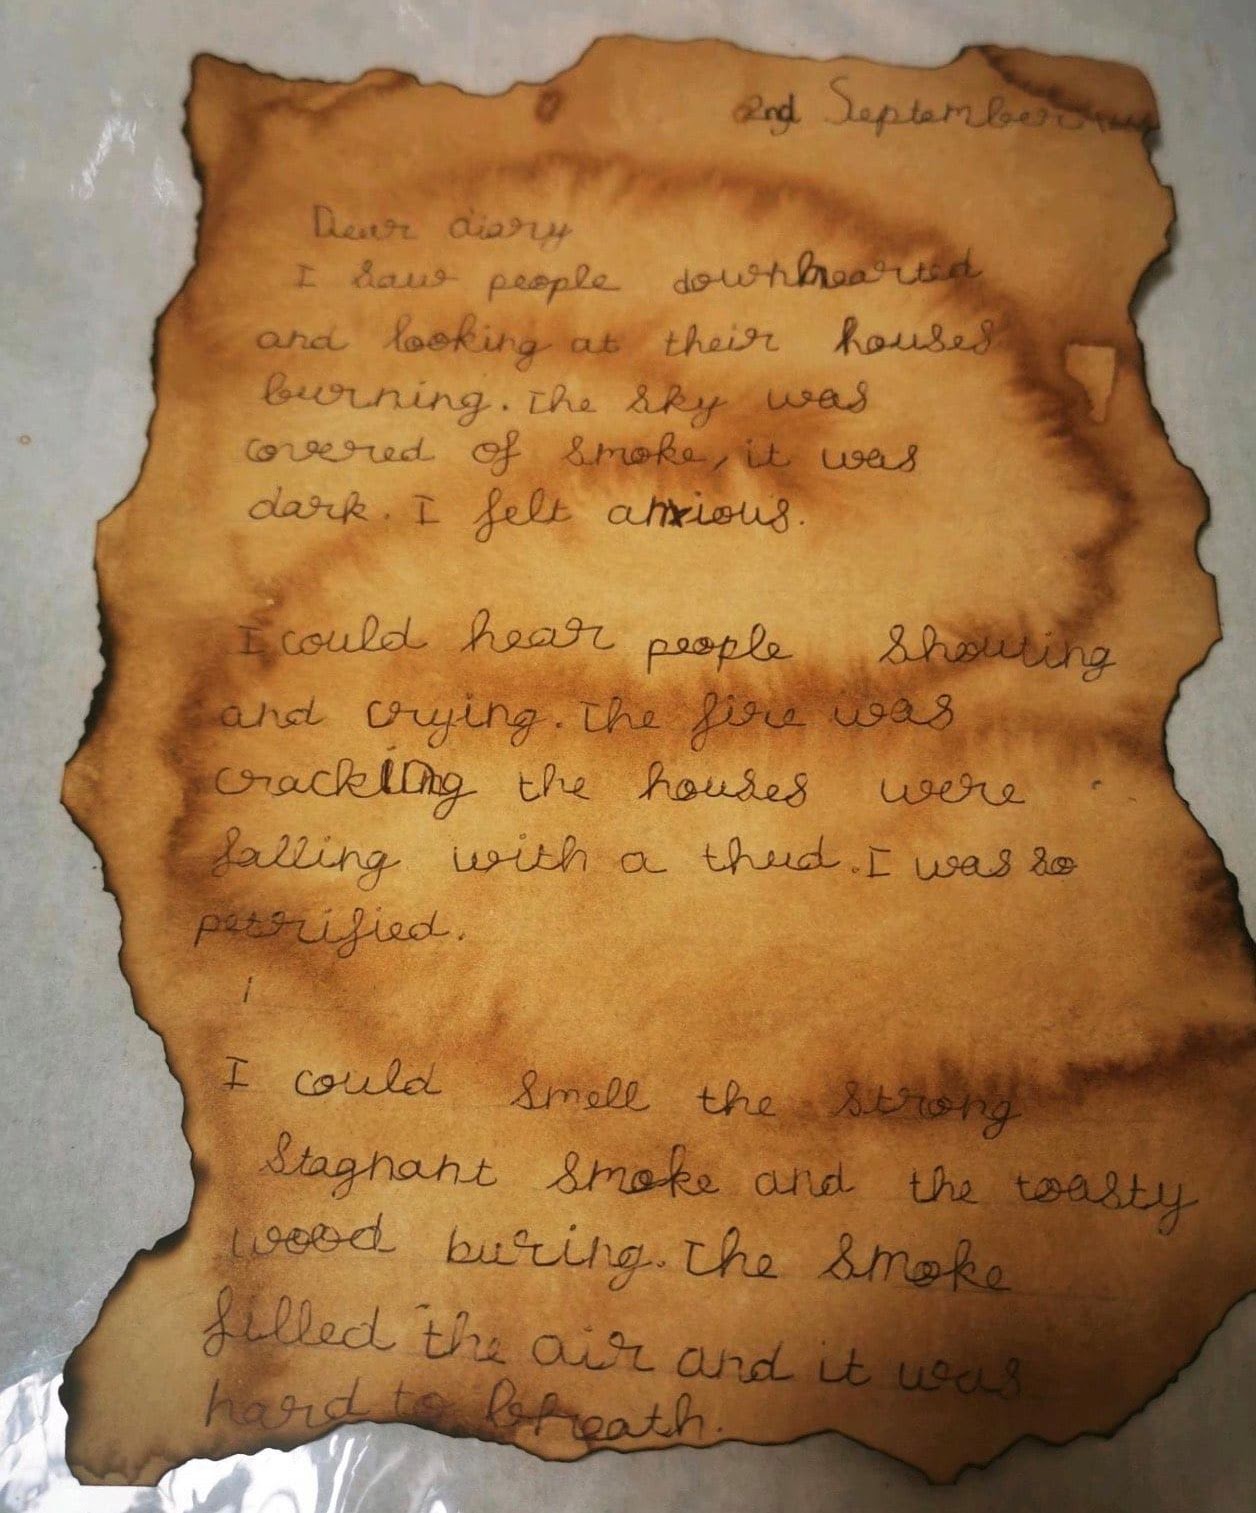 2nd September
Dear diary
I saw people downhearted
and looking at their houses
burning. The sky was
covered of smoke, it was
dark. I felt anxious.
I could hear people shouting
and crying. The fire was
crackling the houses were
falling with a thud. I was so
petrified.
I could smell the strong
stagnant smoke and the toasty
wood buring. The smoke
filled the air and it was
hard to breath.